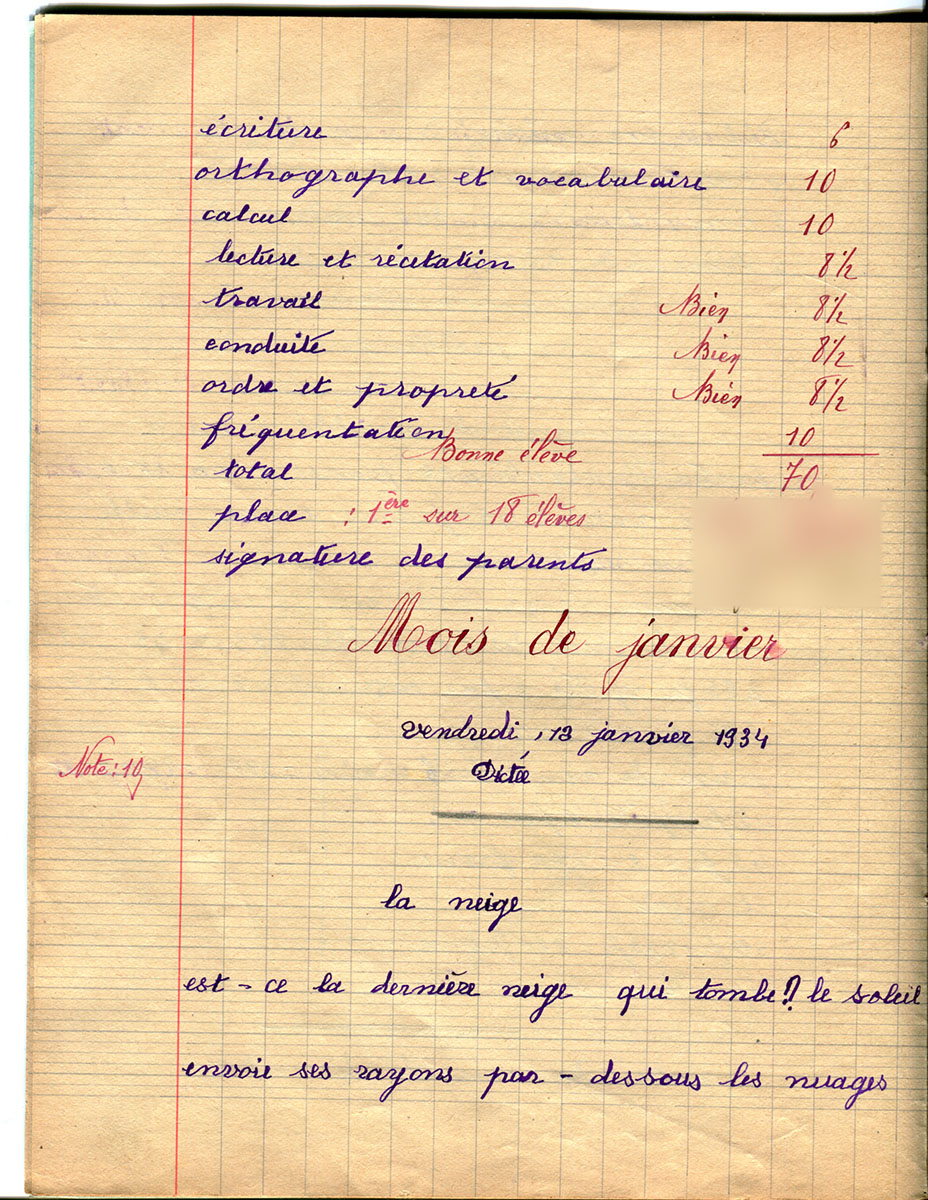 écriture 6
orthographe et vocabulaire 10
calcul 10
lecture et récitation 8 1/2
travail Bien 8 1/2
conduite Bien 8 1/2
ordre et propreté Bien 8 1/2
fréquentation 10
Bonne élève
total 70
place : 1ère sur 18 élèves
signature des parents
Mois de janvier
vendredi, 13 janvier 1934
Note: 10
Dictée
la neige
est-ce la dernière neige qui tombe? le soleil
envoie ses rayons par-dessous les nuages